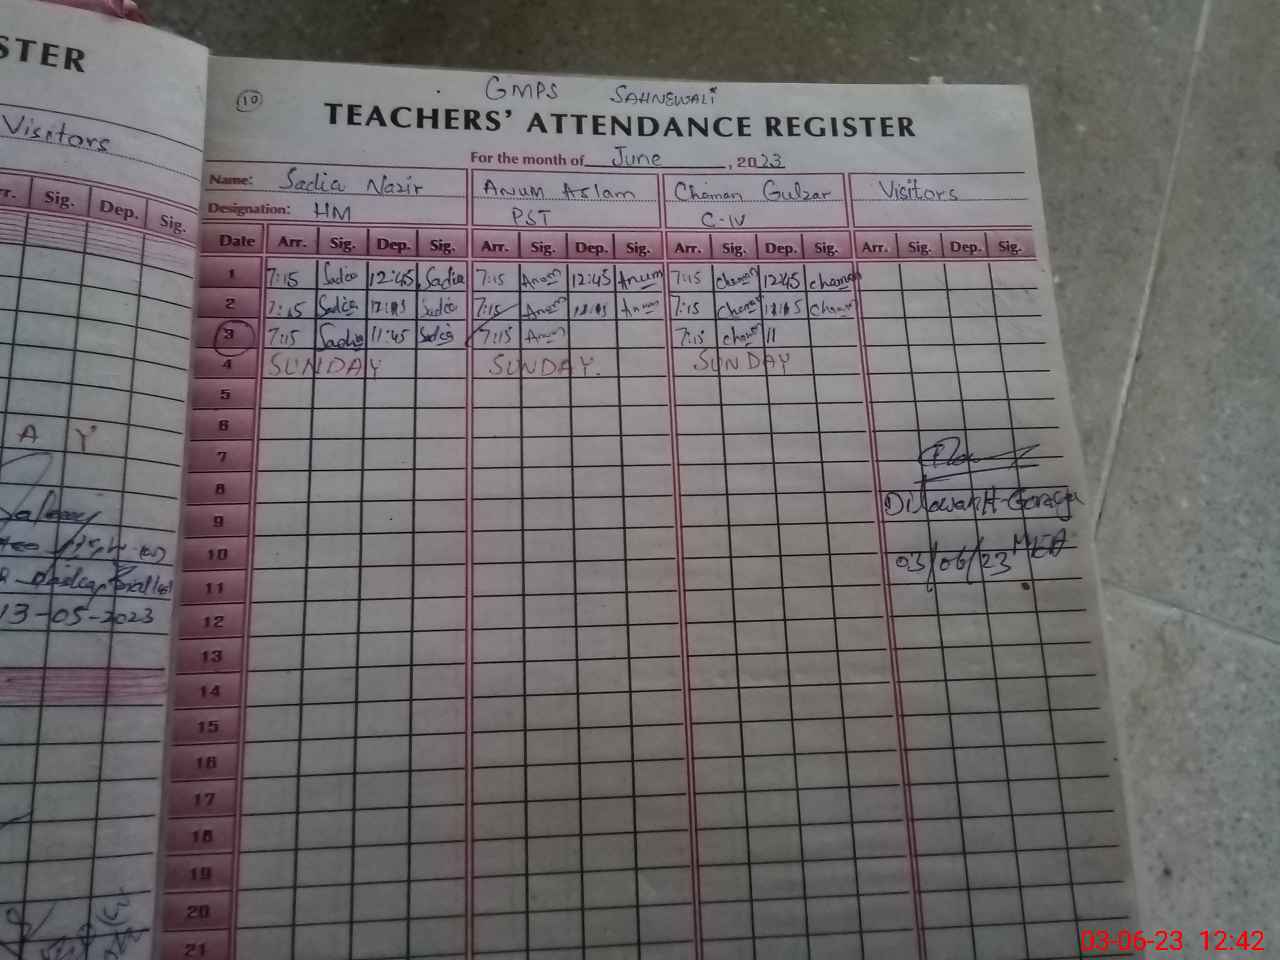 STER
Visitors
r. Sig. Dep. Sig.
A Y
13-05-2023
10
GMPS SAHNEWALI
TEACHERS' ATTENDANCE REGISTER
For the month of June, 2023
Name: Sadia Nazir Anum Aslam Chaman Gulzar Visitors
Designation: HM PST C-IV
Date Arr. Sig. Dep. Sig. Arr. Sig. Dep. Sig. Arr. Sig. Dep. Sig. Arr. Sig. Dep. Sig.
1 7:15 Sadia 12:45 Sadia 7:15 Anum 12:45 Anum 7:15 chaman 12:45 chaman
2 7:15 Sadia Sadia 7:15 Anum Anum 7:15 chaman chaman
3 7:15 Sadia 11:45 Sadia 7:15 Anum 7:15 chaman 11
4 SUNDAY SUNDAY. SUNDAY
5
6
7
8
9
10
03/06/23 MEA
11
12
13
14
15
16
17
18
19
20
21
03-06-23 12:42